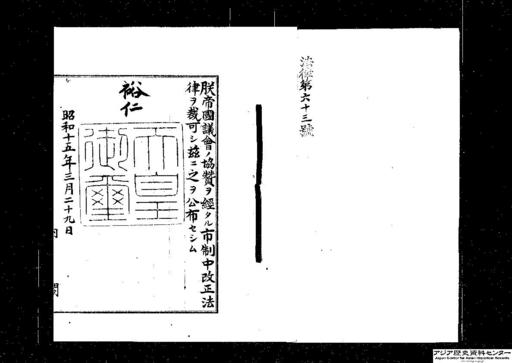 法律第六十三號
朕帝國議會ノ協贊ヲ經タル市制中改正法
律ヲ裁可シ玆ニ之ヲ公布セシム
裕仁
天皇
御璽
昭和十五年三月二十九日
内閣
アジア歴史資料センター
Japan Center for Asian Historical Records